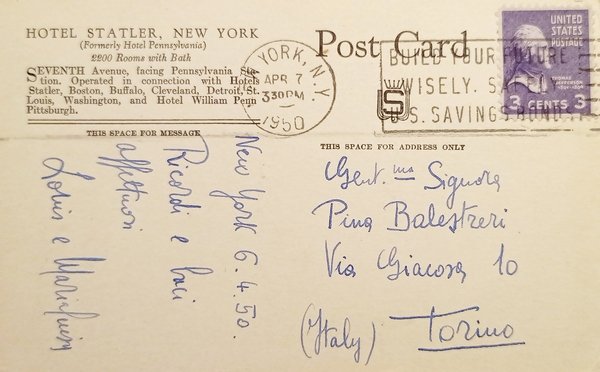 HOTEL STATLER, NEW YORK
(Formerly Hotel Pennsylvania)
2200 Rooms with Bath
SEVENTH Avenue, facing Pennsylvania Sta-
tion. Operated in connection with Hotels
Statler, Boston, Buffalo, Cleveland, Detroit, St.
Louis, Washington, and Hotel William Penn
Pittsburgh.
THIS SPACE FOR MESSAGE
New York 6.4.50.
Ricordi e baci
affettuosi
Louis e
Post Card
YORK, N.Y.
APR 7
330PM
1950
BUILD YOUR FUTURE
WISELY,
U.S. SAVINGS BOND
S
UNITED
STATES
POSTAGE
THOMAS
JEFFERSON
3 CENTS 3
THIS SPACE FOR ADDRESS ONLY
Gent.ma Signora
Pina Balestreri
Via Giacosa 10
(Italy) Torino